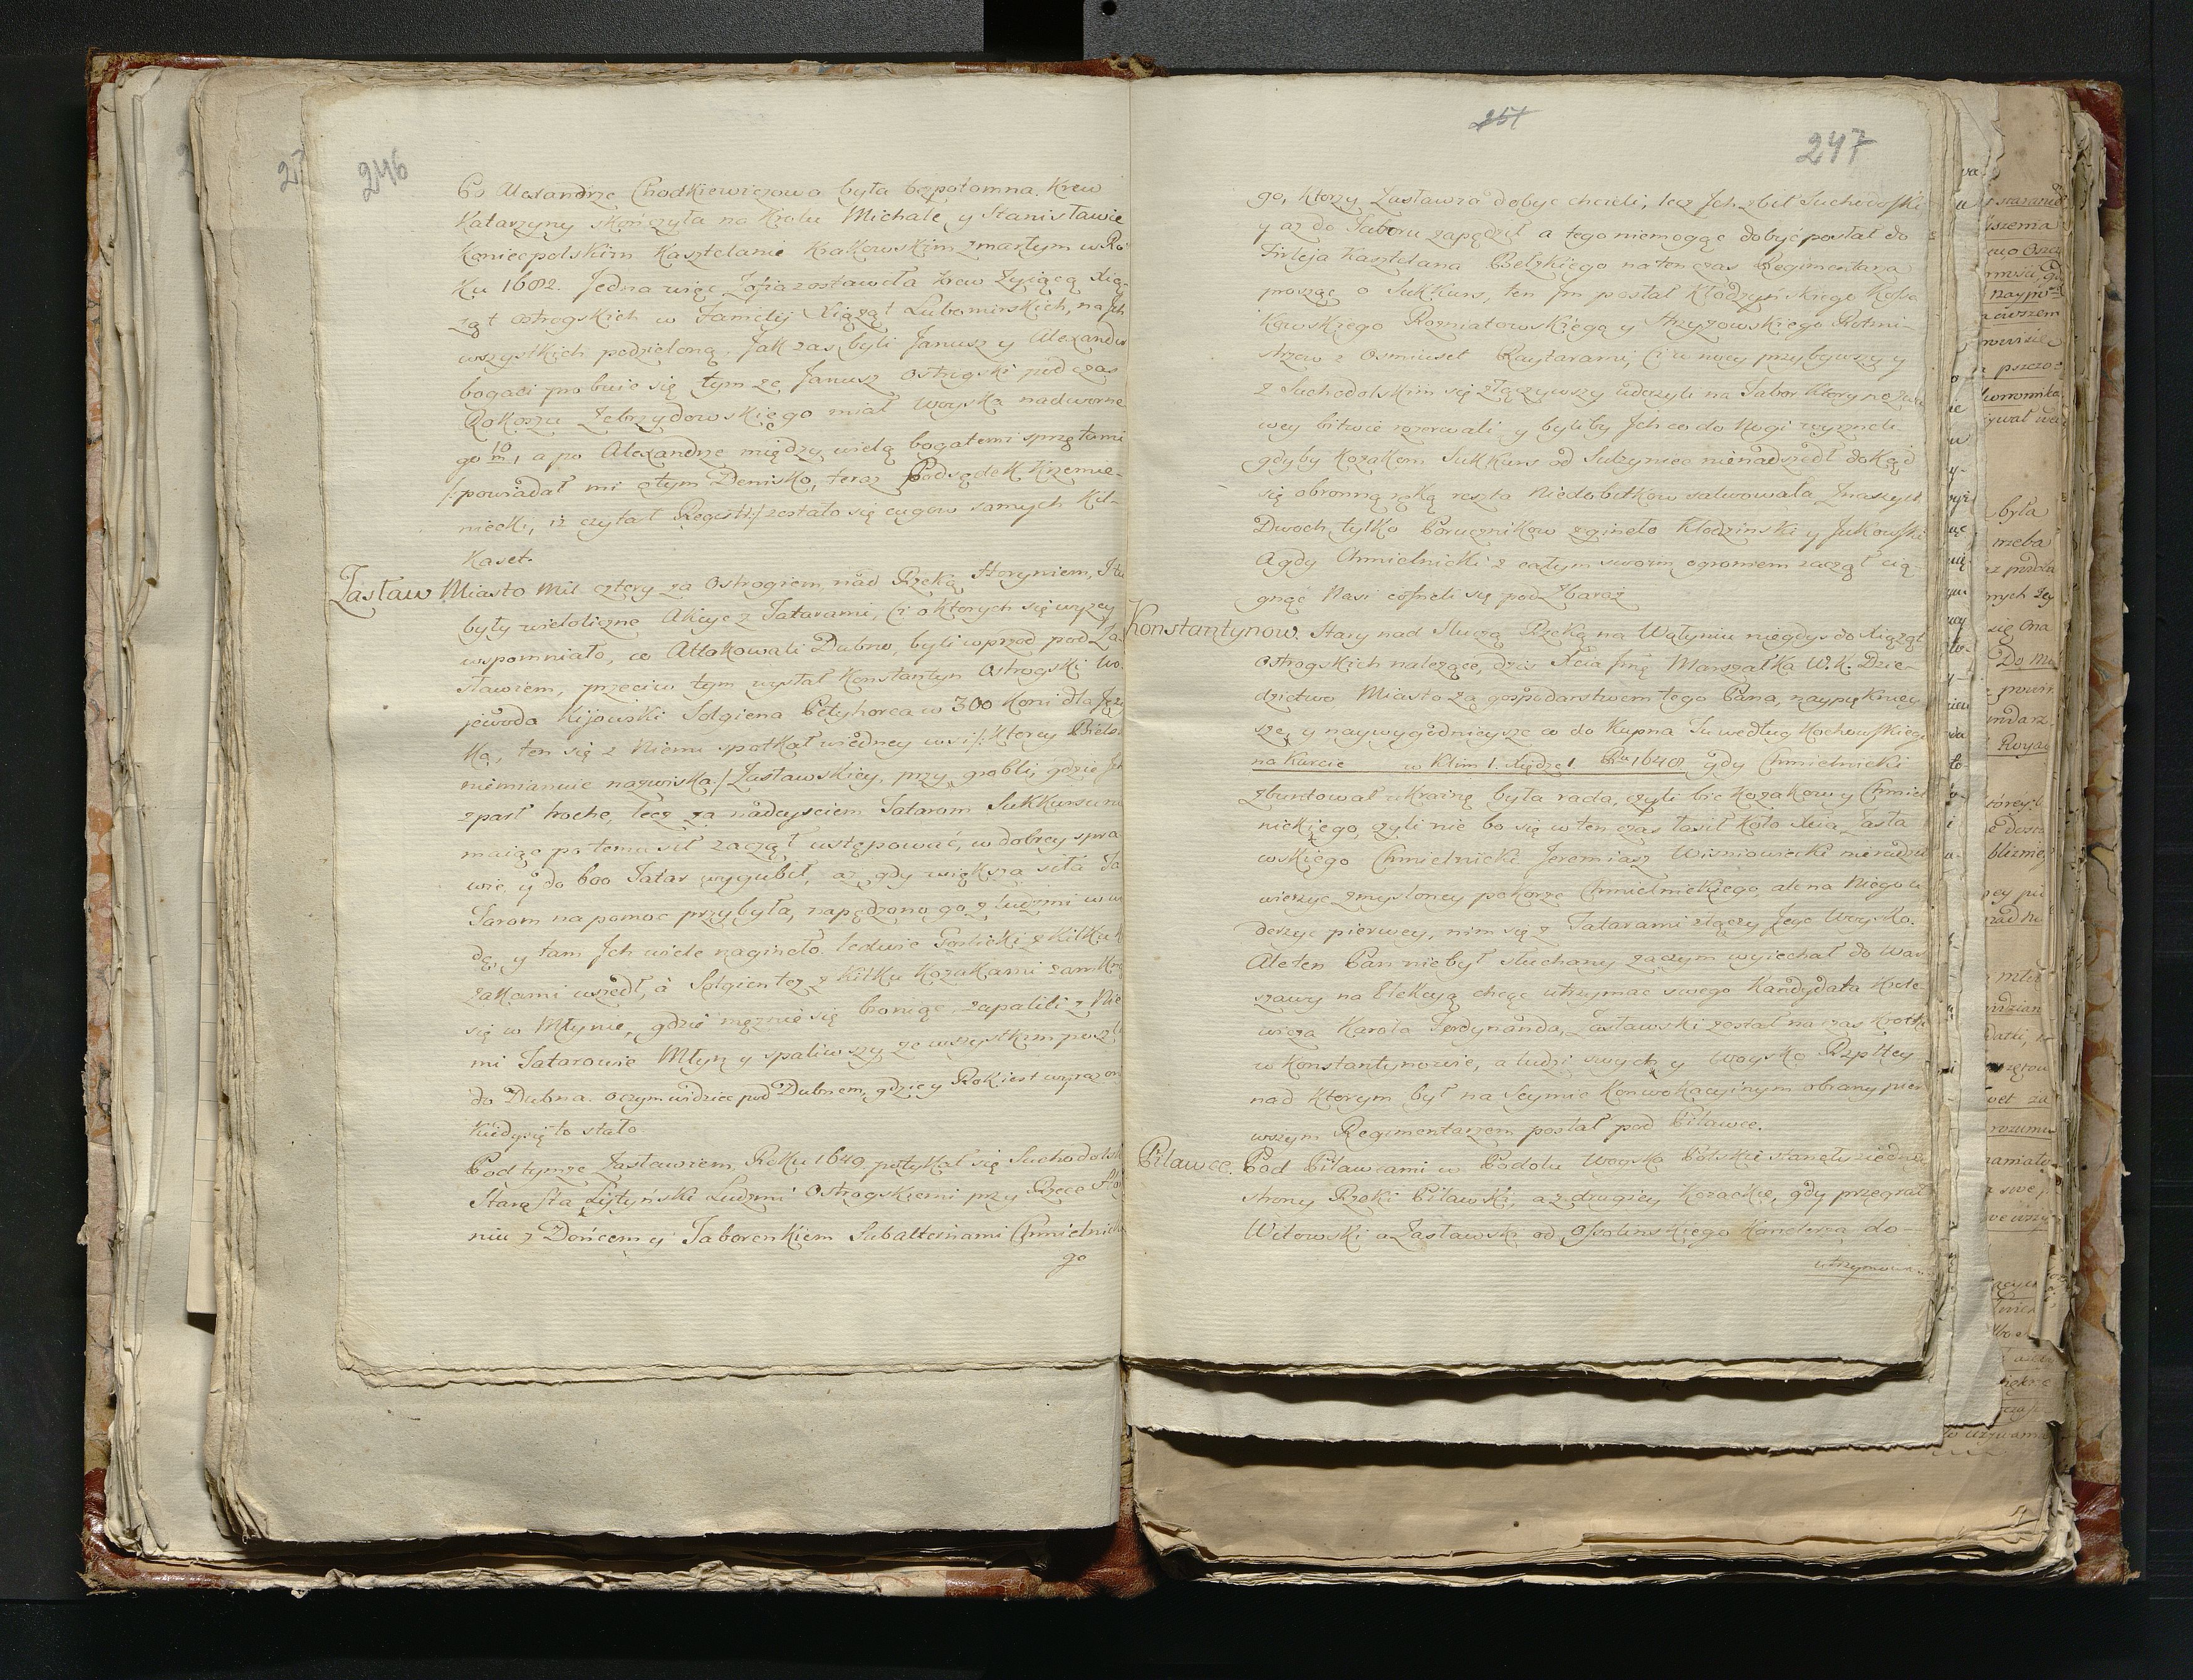 246
Po Alexandrze Chodkiewiczowa była bezpotomna, Krew
Katarzyny skończyła na Krolu Michale y Stanisławie
Koniecpolskim Kasztelanie Krakowskim zmarłym w Ro
Ku 1682. Jedna więc Zofia zostawiła krew żyiącą Xią-
żąt Ostrogskich w Familij Xiążąt Lubomirskich, na Ich
wszystkich podzieloną. Jak zas byli Janusz y Alexander
bogaci probuie się tym że Janusz Ostrogski podczas
Rokoszu Zebrzydowskiego miał Woyska nadworne
go 10/m, a po Alexandrze między wielą bogatemi sprzętami
/: powiadał mi o tym Denisko, teraz Podsędek Krzemie-
niecki, iż czytał Regestr :/ zostało się cugow samych Kil-
Kaset.
Zasław Miasto Mil cztery za Ostrogiem nad Rzeką Horyniem, Tu
były wieloliczne Akcye z Tatarami, Ci o ktorych się wyzey
wspomniało, co Attakowali Dubno, byli wprzod pod Za
sławiem, przeciw tym wysłał Konstantyn Ostrogski Wo
jewoda Kijowski Solgiena Petyhorca w 300 Koni dla Języ
Ka, ten się z Niemi spotkał wiedney wsi /: ktorey Bielski
niemianuie nazwiska :/ Zasławskiey, przy grobli, gdzie Ich
zparł trochę, lecz za nadeysciem Tatarom Sukkursu nie
maiąc po temu sił zaczął ustępować, w dobrey spra
wie, y do 600 Tatar wygubił, aż gdy większa siła Ta
Tarom na pomoc przybyła, napędzono go z ludzmi w wo
dę, y tam Ich wiele naginęło. ledwie Goslicki z Kilku Ko
zakami uszedł, a Solgien też z Kilku Kozakami zamknął
się w Młynie, gdzie mężnie się broniąc, zapalili z Nie
mi Tatarowie Młyn y spaliwszy ze wszystkim poszli
do Dubna. Oczym widziec pod Dubnem, gdzie y Rok iest wyrazon
Kiedy się to stało.
Pod tymze Zasławiem Roku 1649 potykał się Suchodolski
Starosta Lityński Ludzmi Ostrogskiemi przy Rzece Hory
niu z Dońcem y Taborenkiem Subalternami Chmielnickie
go
251
247
go, ktorzy Zasławia dobyc chcieli, lecz Ich zbił Suchodolski
y az do Taboru zapędził a tego niemogąc dobyć posłał do
Firleja Kasztelana Bełzkiego natenczas Regimentarza
prosząc o Sukkurs, ten Im posłał Kłodzyńskiego Kossa
Kowskiego Rozniatowskiego y Strzyżowskiego Rotmi-
strzow z Osmiuset Raytarami, Ci w nocy przybywszy y
z Suchodolskim się złączywszy uderzyli na Tabor ktory po
wey bitwie rozerwali y byliby Ich co do Nogi wyznieli
gdyby Kozakom Sukkurs od Sulzyniec nienadszedł dokąd
się obronną ręką reszta Niedobitkow salwowała Znaszych
Dwoch tylko Porucznikow zgineło Kłodzinski y Jukowski
A gdy Chmielnicki z całym swoim ogromem zaczął cią-
gnąć Nasi cofneli się pod Zbaraż
Konstantynow. Stary nad Słuczą Rzeką na Wołyniu niegdys do Xiążąt
Ostrogskich należące, dzis Xcia Jmę Marszałka W. K. Dzie-
dzictwo Miasto za gospodarstwem tego Pana, naypięKniey
sze, y naywygodnieysze co do Kupna Tu według Kochowskiego
na Karcie w Klim 1. Xiędze 1. Ru 1648 gdy Chmielnicki
zbuntował ukrainę była rada, czyli bic Kozakow y Chmiel
nickiego, czyli nie bo się w ten czas łasił Koło Xcia Zasła
wskiego Chmielnicki Jeremiasz Wisniowiecki nieradził
wierzyc zmysloney pokorze Chmielnickiego, ale na Niego u
derzyc pierwey, nim się z Tatarami złączy Jego Woysko.
Ale ten Pan niebył słuchany zaczym wyiechał do War
szawy na Elekcyą chcąc utrzymac swego Kandydata Krole
wicza Karola Ferdynanda, Zasławski został na czas Krotki
w Konstantynowie, a ludzi swych y Woysko Rzpltey
nad Ktorym był na Seymie Konwokacyinym obrany pier
wszym Regimentarzem posłał pod Piławce.
Piławce. Pod Piławcami w Podolu Woysko Polskie stanęło ziedney
strony Rzeki Piławki, a z drugiey Kozackie, gdy przegrał
Witowski a Zasławski od Ossolinskiego Kanclerza do-
utrzymow